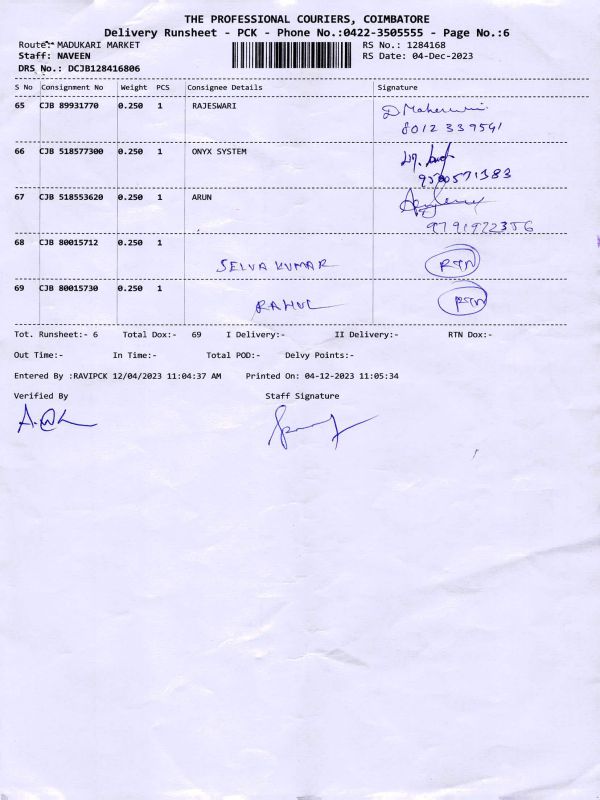 THE PROFESSIONAL COURIERS, COIMBATORE
Delivery Runsheet - PCK - Phone No.:0422-3505555 - Page No.:6
Route: MADUKARI MARKET RS No.: 1284168
Staff: NAVEEN RS Date: 04-Dec-2023
DRS No.: DCJB128416806
S No Consignment No Weight PCS Consignee Details Signature
65 CJB 89931770 0.250 1 RAJESWARI
8012 339541
66 CJB 518577300 0.250 1 ONYX SYSTEM
9500571383
67 CJB 518553620 0.250 1 ARUN
9791922356
68 CJB 80015712 0.250 1
SELVA KUMAR RTN
69 CJB 80015730 0.250 1
RAHUL RTN
Tot. Runsheet:- 6 Total Dox:- 69 I Delivery:- II Delivery:- RTN Dox:-
Out Time:- In Time:- Total POD:- Delvy Points:-
Entered By :RAVIPCK 12/04/2023 11:04:37 AM Printed On: 04-12-2023 11:05:34
Verified By Staff Signature